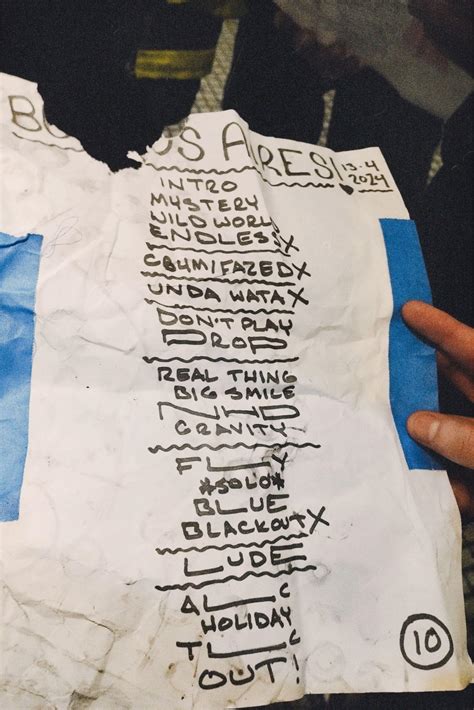 B OS A RES! 13-4
2024
INTRO
MYSTERY
WILD WORL
ENDLESS X
CBUMIFAZED X
UNDA WATA X
DON'T PLAY
DROP
REAL THING
BIG SMILE
NHD
GRAVITY
FLY
*SOLO*
BLUE
BLACKOUT X
LUDE
ALC
HOLIDAY
TLC
OUT!
10